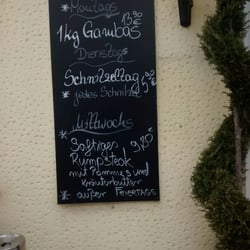 * Montags
1kg Gambas 13,90 €
Dienstags
Schnitzeltag
* jedes Schnitzel 5,90 €
Mittwochs
* Saftiges 9,80 €
Rumpsteak
mit Pommes und
Kräuterbutter
* außer FEIERTAGS